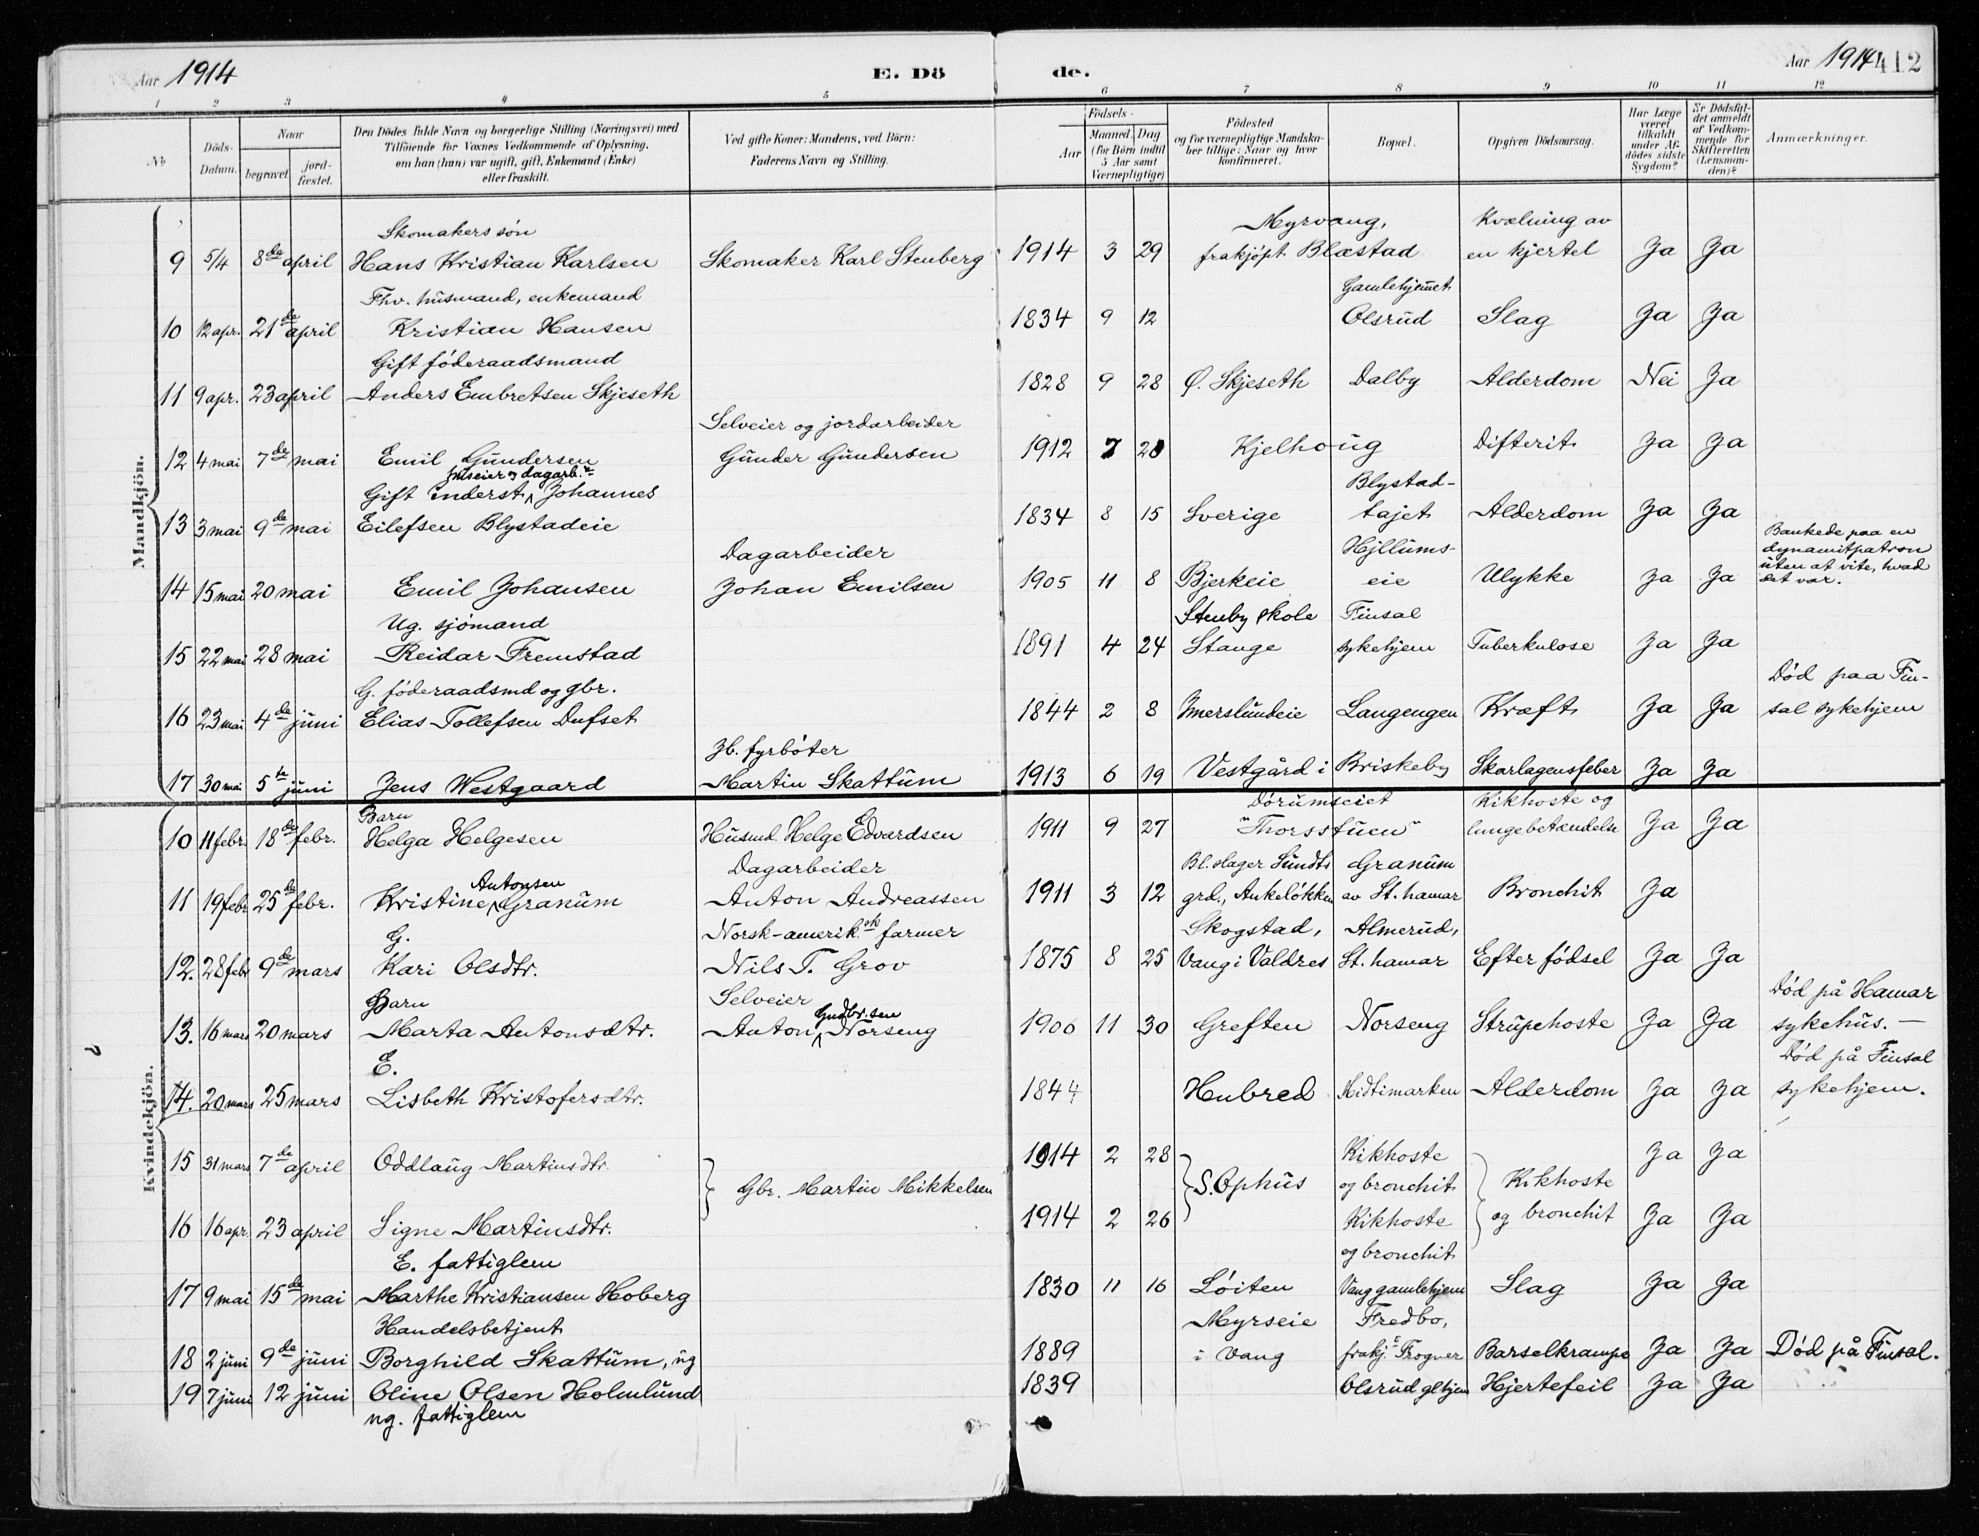 Aar 1914 E. Dö de. Aar 1914 412
1 2 3 4 5 6 7 8 9 10 11 12
No
Döds-Datum.
Naar
begravet.
jord-fæstet.
Den Dödes fulde Navn og borgerlige Stilling (Næringsvei) med
Tilföiende for Voxnes Vedkommende af Oplysning,
om han (hun) var ugift, gift, Enkemand (Enke)
eller fraskilt.
Ved gifte Koner: Mandens, ved Börn:
Faderens Navn og Stilling.
Födsels-
Aar
Maaned. Dag
(for Börn indtil
5 Aar samt
Værnepligtige)
Födested
og for værnepligtige Mandska-
ber tillige: Naar og hvor
konfirmeret.
Bopæl.
Opgiven Dödsaarsag.
Har Læge
været
tilkaldt
under Af-
dödes sidste
Sygdom?
Er Dödsfal-
det anmeldt
af Vedkom-
mende for
Skifteretten
(Lensman-
den)?
Anmærkninger.
Mandkjön.
Skomakers søn Myrvang, Kvælning av
9 5/4 8de april Hans Kristian Karlsen Skomaker Karl Stenberg 1914 3 29 frakjøpt Blæstad en kjertel Ja Ja
Fhv. husmand, enkemand Gamlehjemmet
10 12 apr. 21de april Kristian Hansen 1834 9 12 Olsrud Slag Ja Ja
Gift føderaadsmand
11 9 apr. 23 april Anders Embretsen Skjeseth 1828 9 28 Ø. Skjeseth Dalby Alderdom Nei Ja
Selveier og jordarbeider
12 4 mai 7de mai Emil Gundersen Gunder Gundersen 1912 7 28 Kjelhoug Difterit Ja Ja
huseier og dagarb.
Gift inderst, Johannes Blystad-
13 3 mai 9de mai Eilefsen Blystadeie 1834 8 15 Sverige tajet Alderdom Ja Ja
Dagarbeider Hjellums-
14 15 mai 20 mai Emil Johansen Johan Emilsen 1905 11 8 Bjerkeie eie Ulykke Ja Ja
Bankede paa en
dynamitpatron
uten at vite, hvad
det var.
Ug. sjømand Stenby skole Finsal
15 22 mai 28 mai Reidar Fremstad 1891 4 24 Stange sykehjem Tuberkulose Ja Ja
G. føderaadsmd og gbr. Død paa Fin-
16 23 mai 4de juni Elias Tollefsen Dufset 1844 2 8 Imerslundeie Langengen Kræft Ja Ja sal sykehjem
Jb. fyrbøter
17 30 mai 5te juni Jens Westgaard Martin Skattum 1913 6 19 Vestgård i Briskeby Skarlagensfeber Ja Ja
Kvindekjön.
Barn Dørumseiet Kikhoste og
10 11 febr. 18de febr. Helga Helgesen Husmd. Helge Edvardsen 1911 9 27 "Thorsstuen" lungebetændelse Ja Ja
Dagarbeider Bl.slager Sundts Granum
11 19 febr 25de febr. Kristine Antonsen Granum Anton Andreassen 1911 3 12 grd., Ankeløkken av St. hamar Bronchit Ja
G. Norsk-amerik.sk farmer Skogstad, Almerud,
12. 28 febr 9de mars Kari Olsdtr. Nils T. Grov 1875 8 25 Vang i Valdres St. hamar Efter fødsel Ja Ja
Barn Selveier Død på Hamar
13. 16 mars 20 mars Marta Antonsdtr. Anton Gudbr.sen Norseng 1900 11 30 Greften Norseng Strupehoste Ja Ja sykehus. —
E. Død på Finsal
14. 20 mars 25 mars Lisbeth Kristofersdtr. 1844 Hubred Midtimarken Alderdom Ja Ja sykehjem.
15 31 mars 7de april Oddlaug Martinsdtr. 1914 2 28 Kikhoste Ja Ja
Gbr. Martin Mikkelsen S. Ophus og bronchit Kikhoste
16 16 apr. 23 april Signe Martinsdtr. 1914 2 26 Kikhoste og bronchit Ja Ja
E. fattiglem og bronchit
17 9 mai 15de mai Marthe Kristiansen Hoberg 1830 11 16 Løiten Vang gamlehjem Slag Ja Ja
Handelsbetjent Myrseie Fredbo,
18 2 juni 9de juni Borghild Skattum, ug 1889 i Vang frakj. Frogner Barselkrampe Ja Ja Død på Finsal.
19 7 juni 12 juni Oline Olsen Holmlund 1839 Olsrud glhjem Hjertefeil Ja Ja
ug. fattiglem